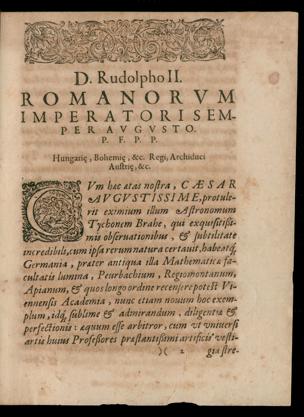 D. Rudolpho II.
ROMANORVM
IMPERATORI SEM-
PER AVGVSTO.
P. F. P. P.
Hungarię, Bohemię, &c. Regi, Archiduci
Austrię, &c.
CVm hac ætas nostra, CÆSAR
AVGVSTISSIME, protule-
rit eximium illum Astronomum
Tychonem Brahe, qui exquisitissi-
mis observationibus, & subtilitate
incredibili, cum ipsa rerum natura certavit, habeatq́;
Germania, præter antiqua illa Mathematicæ fa-
cultatis lumina, Peurbachium, Regiomontanum,
Apianum, & quos longo ordine recensere potest Vi-
ennensis Academia, nunc etiam novum hoc exem-
plum, idq́; sublime & admirandum, diligentiæ &
perfectionis: æquum esse arbitror, cum ut vniversi
artis huius Professores præstantissimi artificis vesti-
)( 2 gia stre-